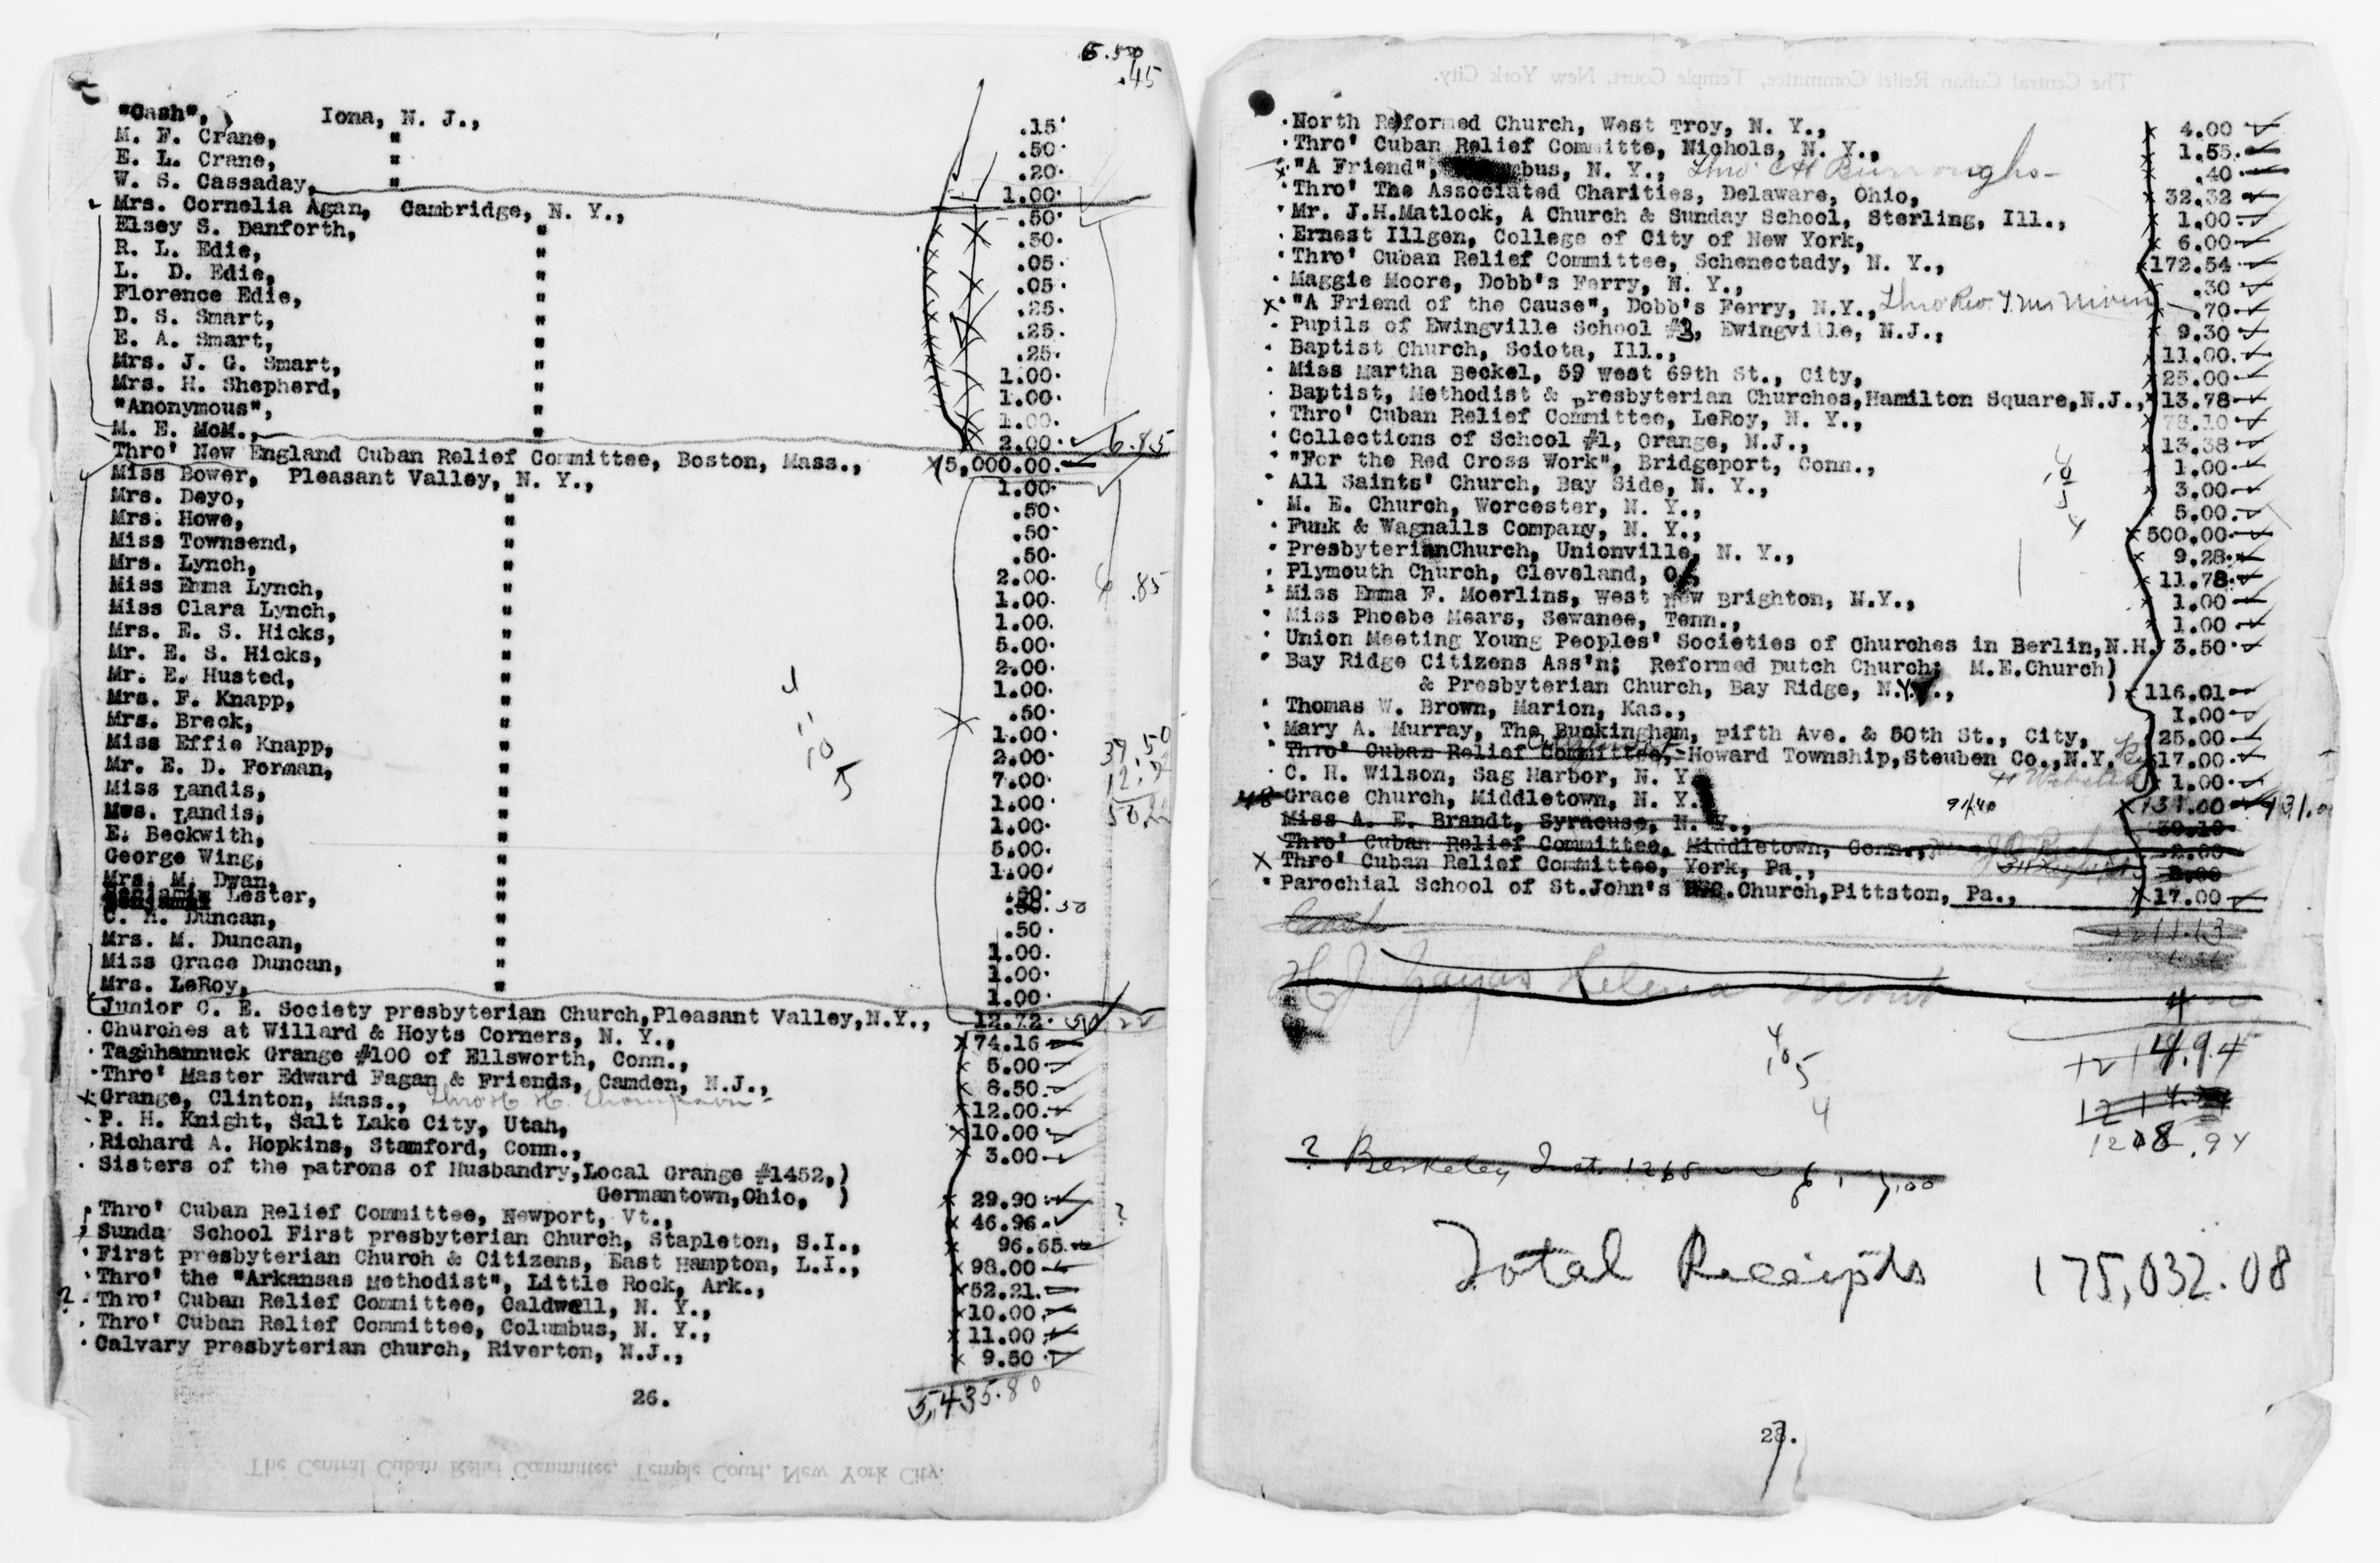 6.50
.45
"Cash", ) Iona, N. J., .15
M. F. Crane, " .50
E. L. Crane, " .20
W. S. Cassaday, " 1.00
Mrs. Cornelia Agan, Cambridge, N. Y., .50
Elsey S. Danforth, " .50
R. L. Edie, " .05
L. D. Edie, " .05
Florence Edie, " .25
D. S. Smart, " .25
E. A. Smart, " .25
Mrs. J. G. Smart, " 1.00
Mrs. H. Shepherd, " 1.00
"Anonymous", " 1.00
M. E. McM., " 2.00 6.85
Thro' New England Cuban Relief Committee, Boston, Mass., 5,000.00
Miss Bower, Pleasant Valley, N. Y., 1.00
Mrs. Deyo, " .50
Mrs. Howe, " .50
Miss Townsend, " .50
Mrs. Lynch, " 2.00
Miss Emma Lynch, " 1.00 6.85
Miss Clara Lynch, " 1.00
Mrs. E. S. Hicks, " 5.00
Mr. E. S. Hicks, " 2.00
Mr. E. Husted, " 1.00
Mrs. F. Knapp, " .50
Mrs. Breck, " 1.00
Miss Effie Knapp, " 2.00 37.50
Mr. E. D. Forman, " 7.00
Miss Landis, " 1.00
Mrs. Landis, " 1.00
E. Beckwith, " 5.00
George Wing, " 1.00
Mrs. M. Dwan, " .50
Benjamin Lester, " .50
C. H. Duncan, " .50
Mrs. M. Duncan, " 1.00
Miss Grace Duncan, " 1.00
Mrs. LeRoy, " 1.00
Junior C. E. Society Presbyterian Church,Pleasant Valley,N.Y., 12.72 50.22
Churches at Willard & Hoyts Corners, N. Y., 74.16
Taghhannuck Grange #100 of Ellsworth, Conn., 5.00
Thro' Master Edward Fagan & Friends, Camden, N.J., 8.50
Grange, Clinton, Mass., Thro H. H. Thompson 12.00
P. H. Knight, Salt Lake City, Utah, 10.00
Richard A. Hopkins, Stamford, Conn., 3.00
Sisters of the Patrons of Husbandry,Local Grange #1452,)
Germantown,Ohio, ) 29.90
Thro' Cuban Relief Committee, Newport, Vt., 46.96 ?
Sunda School First Presbyterian Church, Stapleton, S.I., 96.65
First Presbyterian Church & Citizens, East Hampton, L.I., 98.00
Thro' the "Arkansas Methodist", Little Rock, Ark., 52.21
? Thro' Cuban Relief Committee, Caldwell, N. Y., 10.00
Thro' Cuban Relief Committee, Columbus, N. Y., 11.00
Calvary Presbyterian Church, Riverton, N.J., 9.50
5,435.80
26.
The Central Cuban Relief Committee, Temple Court, New York City.
The Central Cuban Relief Committee, Temple Court, New York City.
North Reformed Church, West Troy, N. Y., 4.00
Thro' Cuban Relief Committe, Nichols, N. Y., 1.55
"A Friend", bus, N. Y., Thro' C H Burroughs .40
Thro' The Associated Charities, Delaware, Ohio, 32.32
Mr. J.H.Matlock, A Church & Sunday School, Sterling, Ill., 1.00
Ernest Illgen, College of City of New York, 6.00
Thro' Cuban Relief Committee, Schenectady, N. Y., 172.54
Maggie Moore, Dobb's Ferry, N. Y., .30
"A Friend of the Cause", Dobb's Ferry, N.Y., Thro Rev T. M. Niven .70
Pupils of Ewingville School #3, Ewingville, N.J., 9.30
Baptist Church, Sciota, Ill., 11.00
Miss Martha Beckel, 59 West 69th St., City, 25.00
Baptist, Methodist & Presbyterian Churches,Hamilton Square,N.J., 13.78
Thro' Cuban Relief Committee, LeRoy, N. Y., 78.10
Collections of School #1, Orange, N.J., 13.38
"For the Red Cross Work", Bridgeport, Conn., 1.00
All Saints' Church, Bay Side, N. Y., 3.00
M. E. Church, Worcester, N. Y., 5.00
Funk & Wagnalls Company, N. Y., 500.00
PresbyterianChurch, Unionville, N. Y., 9.28
Plymouth Church, Cleveland, O., 11.78
Miss Emma F. Moerlins, West New Brighton, N.Y., 1.00
Miss Phoebe Mears, Sewanee, Tenn., 1.00
Union Meeting Young Peoples' Societies of Churches in Berlin,N.H. 3.50
Bay Ridge Citizens Ass'n; Reformed Dutch Church; M.E.Church)
& Presbyterian Church, Bay Ridge, N.Y., ) 116.01
Thomas W. Brown, Marion, Kas., 1.00
Mary A. Murray, The Buckingham, Fifth Ave. & 50th St., City, 25.00
Thro' Cuban Relief Committee, Howard Township,Steuben Co.,N.Y. 17.00
C. H. Wilson, Sag Harbor, N. Y. 1.00
Grace Church, Middletown, N. Y. 131.00 131.00
Miss A. E. Brandt, Syracuse, N. Y., 30.10
Thro' Cuban Relief Committee, Middletown, Conn., 2.00
Thro' Cuban Relief Committee, York, Pa.,
Parochial School of St.John's Church,Pittston, Pa., 17.00
Cash
H J Zayas Helena Mont
4
1214.94
1208.94
? Berkeley Inst.
Total Receipts 175,032.08